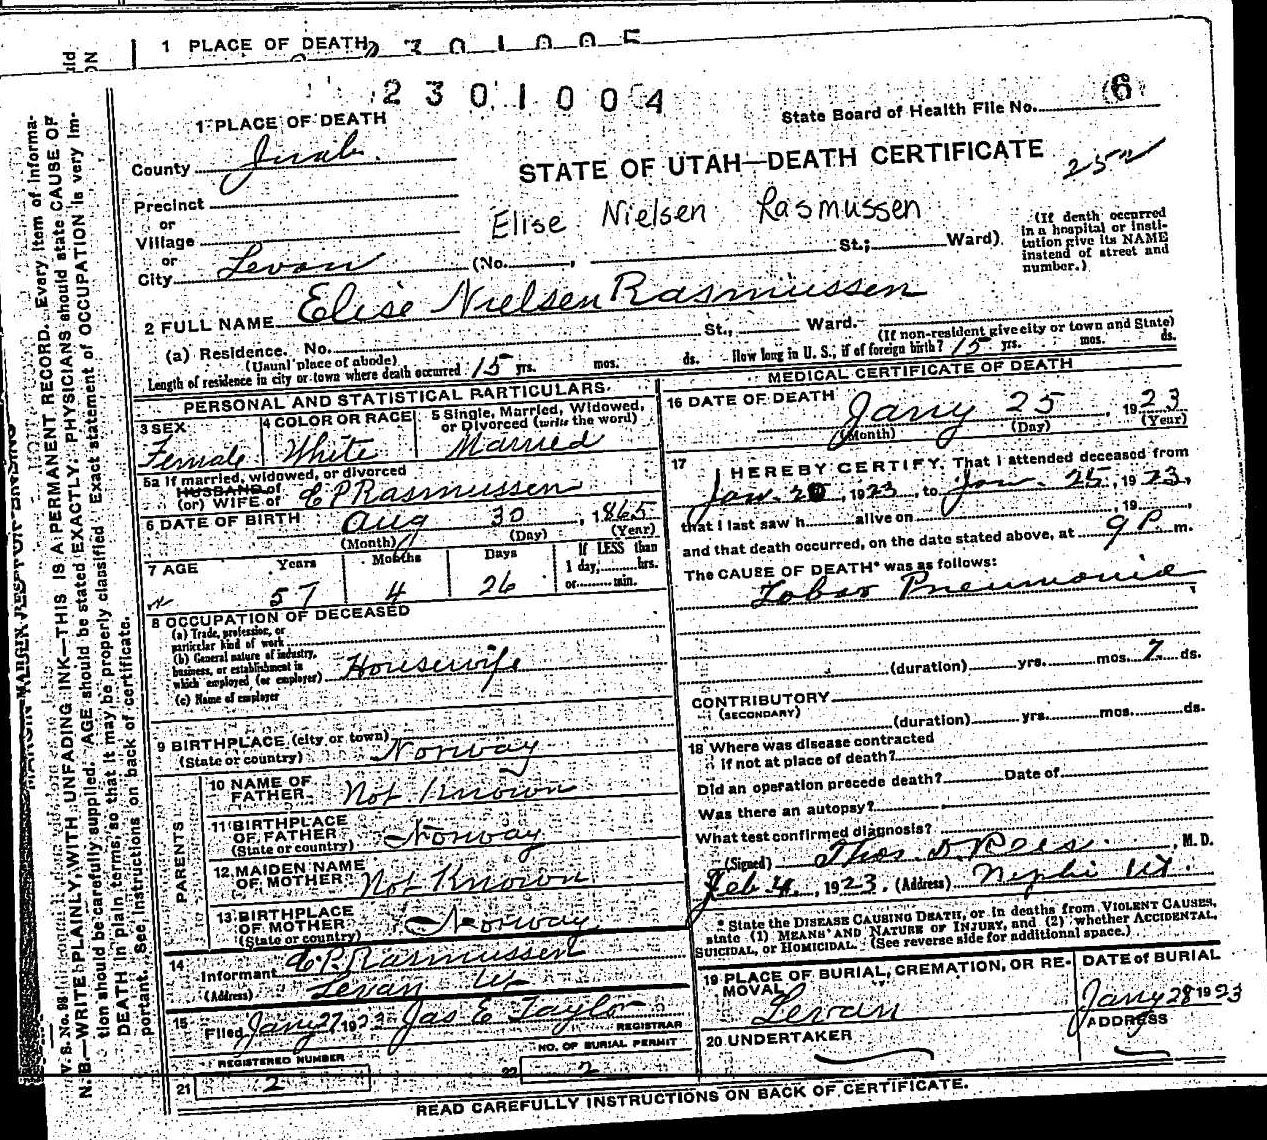 1 PLACE OF DEATH
2 3 0 1 0 0 5
2 3 0 1 0 0 4
(6)
State Board of Health File No.
1 PLACE OF DEATH
County Juab
STATE OF UTAH—DEATH CERTIFICATE
Precinct
or
Village
or
City Levan (No. , St.; Ward)
Elise Nielsen Rasmussen
(If death occurred in a hospital or insti-
tution give its NAME
instead of street and
number.)
2 FULL NAME Elise Nielsen Rasmussen
(a) Residence. No. St., Ward.
(Usual place of abode) (If non-resident give city or town and State)
Length of residence in city or town where death occurred 15 yrs. mos. ds. How long in U. S., if of foreign birth? 15 yrs. mos. ds.
PERSONAL AND STATISTICAL PARTICULARS.
3 SEX
Female
4 COLOR OR RACE
White
5 Single, Married, Widowed,
or Divorced (write the word)
Married
5a If married, widowed, or divorced
HUSBAND of
(or) WIFE of C P Rasmussen
6 DATE OF BIRTH Aug 30, 1865
(Month) (Day) (Year)
7 AGE Years Months Days If LESS than
1 day, hrs.
or min.
57 4 26
8 OCCUPATION OF DECEASED
(a) Trade, profession, or
particular kind of work
(b) General nature of industry,
business, or establishment in
which employed (or employer) Housewife
(c) Name of employer
9 BIRTHPLACE (city or town)
(State or country) Norway
PARENTS
10 NAME OF
FATHER Not Known
11 BIRTHPLACE
OF FATHER
(State or country) Norway
12 MAIDEN NAME
OF MOTHER Not Known
13 BIRTHPLACE
OF MOTHER
(State or country) Norway
14
Informant C. P. Rasmussen
(Address) Levan Ut
15
Filed Jany 27 1923 Jas E Taylor
REGISTRAR
REGISTERED NUMBER
21 2
NO. OF BURIAL PERMIT
22 2
MEDICAL CERTIFICATE OF DEATH
16 DATE OF DEATH Jany 25, 1923
(Month) (Day) (Year)
17
I HEREBY CERTIFY, That I attended deceased from
Jan. 20, 1923, to Jan. 25, 1923,
that I last saw h alive on , 19
and that death occurred, on the date stated above, at 9 P m.
The CAUSE OF DEATH* was as follows:
Lobar Pneumonia
(duration) yrs. mos. 7 ds.
CONTRIBUTORY
(SECONDARY)
(duration) yrs. mos. ds.
18 Where was disease contracted
if not at place of death?
Did an operation precede death? Date of
Was there an autopsy?
What test confirmed diagnosis?
(Signed) Thos. D. Rees, M. D.
Feb 4, 1923. (Address) Nephi Ut.
* State the DISEASE CAUSING DEATH, or in deaths from VIOLENT CAUSES,
state (1) MEANS AND NATURE OF INJURY, and (2) whether ACCIDENTAL,
SUICIDAL, or HOMICIDAL. (See reverse side for additional space.)
19 PLACE OF BURIAL, CREMATION, OR RE-
MOVAL
Levan
DATE of BURIAL
Jany 28 1923
20 UNDERTAKER
ADDRESS
READ CAREFULLY INSTRUCTIONS ON BACK OF CERTIFICATE.
V. S. No. 98
N. B.—WRITE PLAINLY, WITH UNFADING INK—THIS IS A PERMANENT RECORD. Every item of informa-
tion should be carefully supplied. AGE should be stated EXACTLY. PHYSICIANS should state CAUSE OF
DEATH in plain terms, so that it may be properly classified. Exact statement of OCCUPATION is very im-
portant. See instructions on back of certificate.